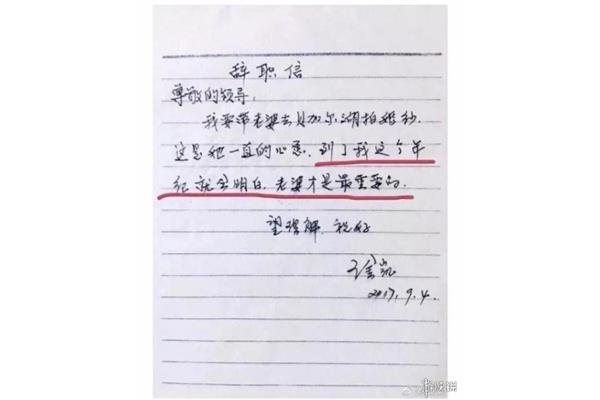 辞职信
尊敬的领导:
我要带老婆去贝加尔湖拍婚纱
这是她一直的心愿,到了我这个年
纪就会明白,老婆才是最重要的.
望理解,祝好
徐凯
2017.9.4.